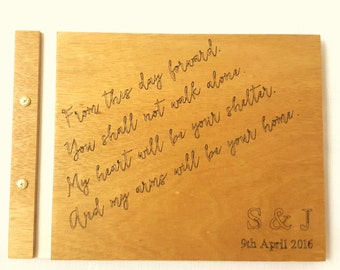 From this day forward.
You shall not walk alone.
My heart will be your shelter.
And my arms will be your home.
S & J
9th April 2016